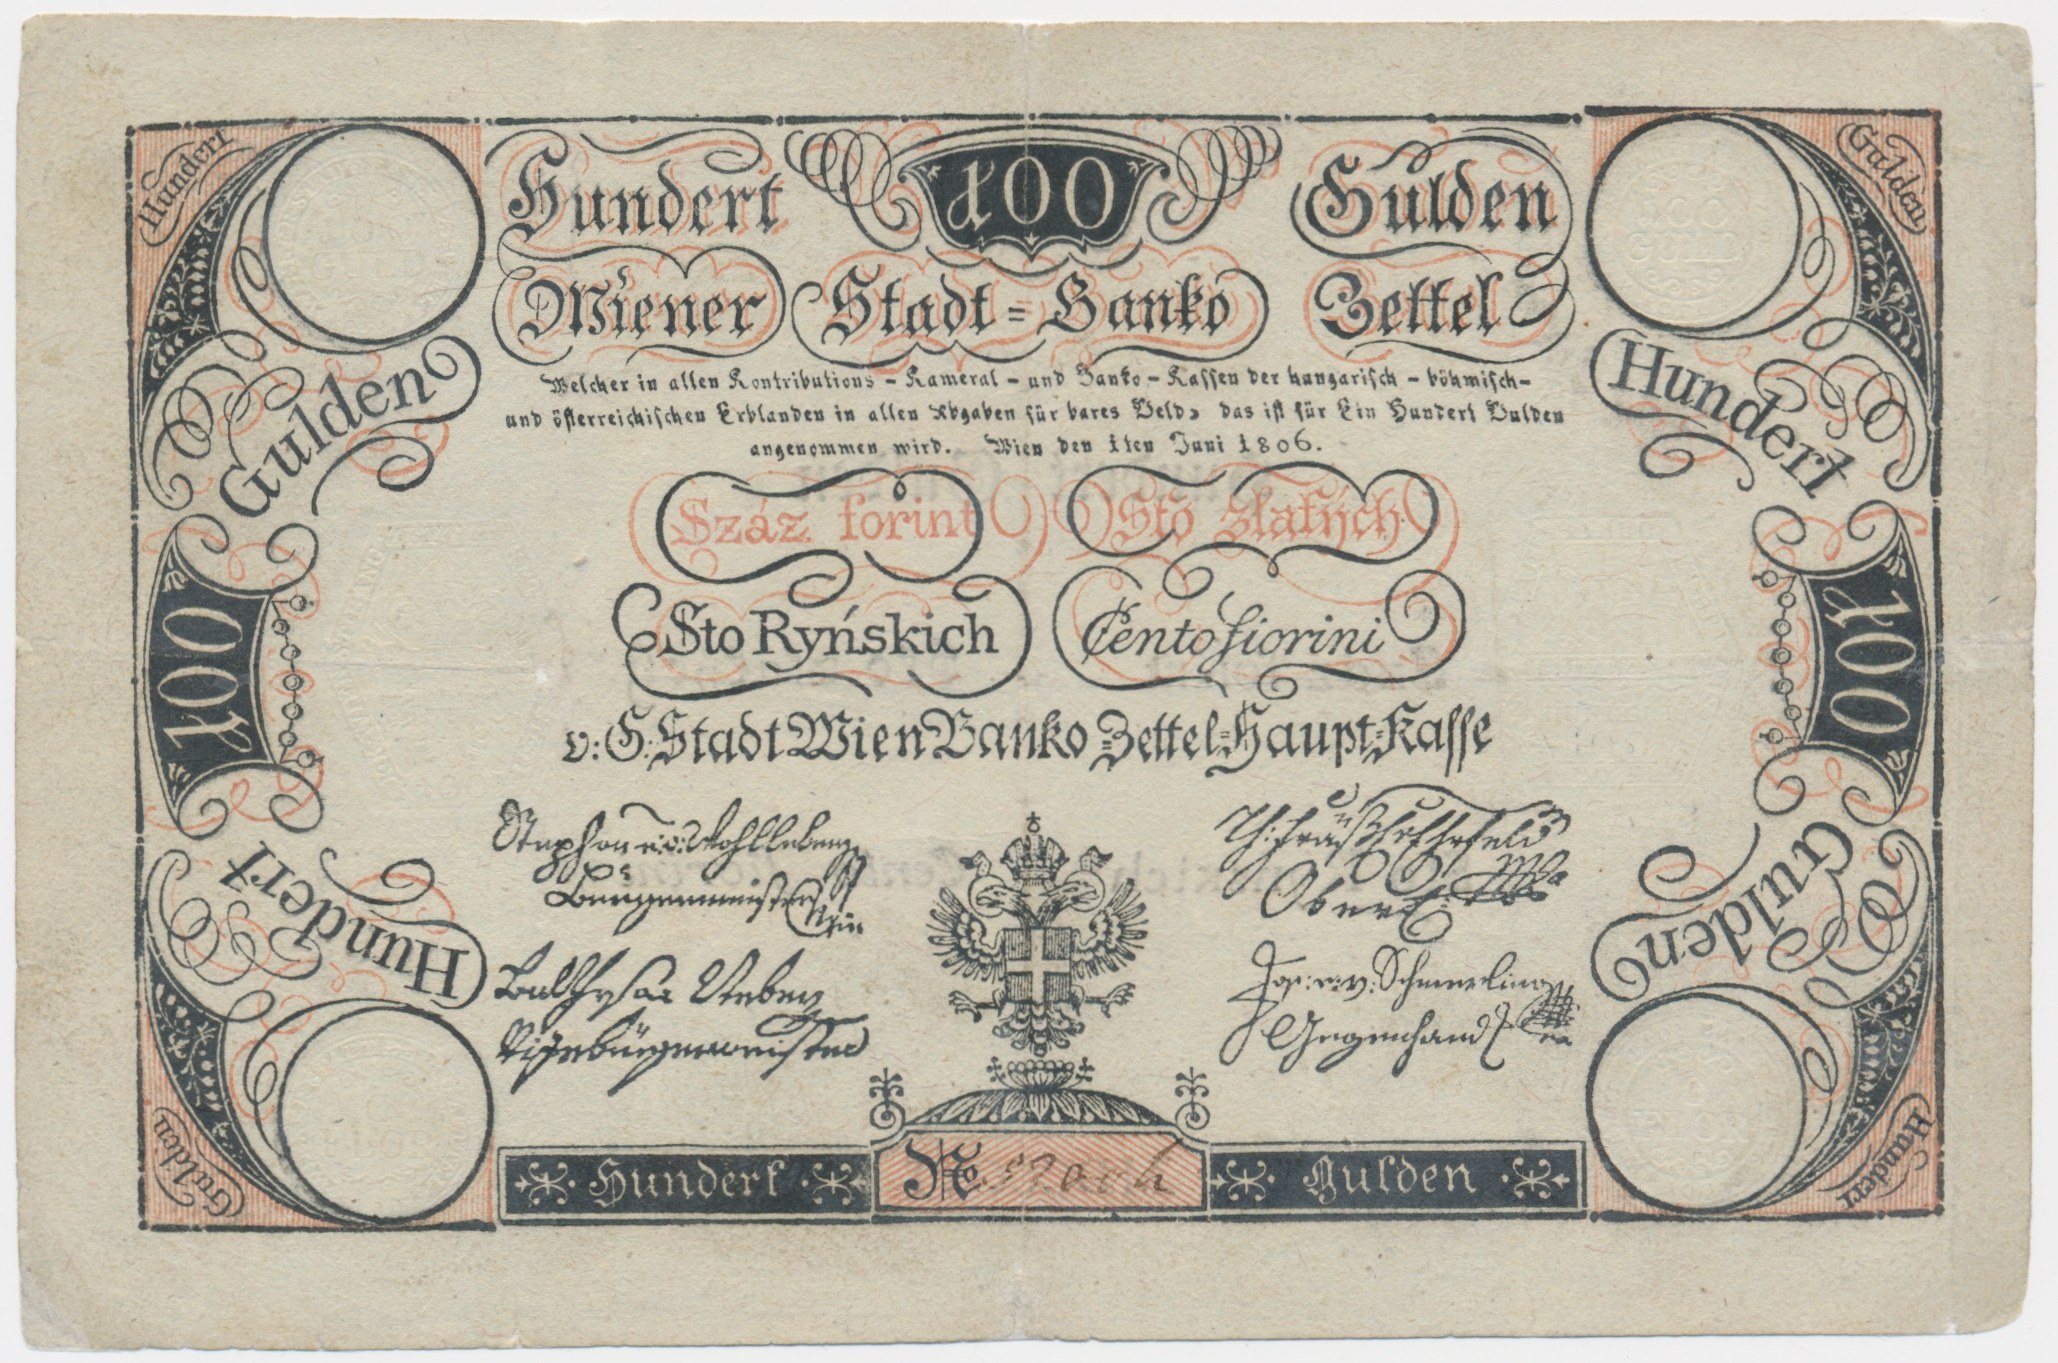 Hundert 100 Gulden
Wiener Stadt=Banko Zettel
Welcher in allen Kontributions - Kameral - und Banko - Kassen der hungarisch - böhmisch-
und österreichischen Erblanden in allen Abgaben für bares Geld, das ist für Ein Hundert Gulden
angenommen wird. Wien den 1ten Juni 1806.
Száz forint Sto zlatých
Sto Ryńskich Cento fiorini
v: G: Stadt Wien Banko=Zettel=Haupt=Kasse
Stephan e: v: Wohlleben
Bürgermeister
Th:
Ober
Jos: e: v: Schmerling
Gegenhand
Vizebürgermeister
No
Hundert Gulden
Hundert
Gulden
100
Hundert
Gulden
Gulden
Hundert
100
Gulden
Hundert
100
GULD